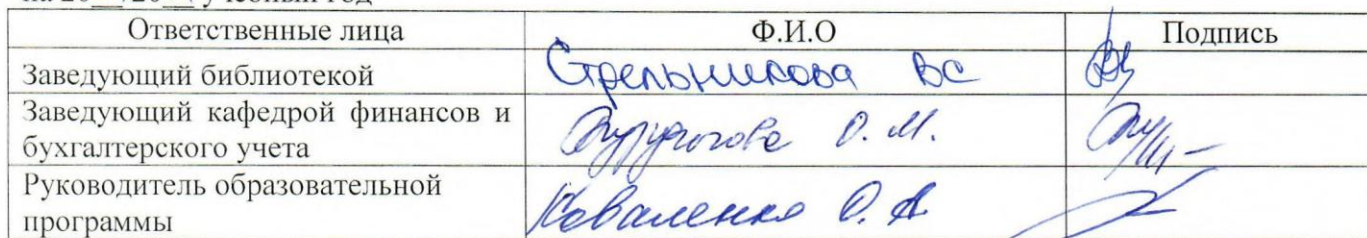 на 20__/20__ учебный год
Ответственные лица Ф.И.О Подпись
Заведующий библиотекой Стрельникова ВС
Заведующий кафедрой финансов и
бухгалтерского учета О. М.
Руководитель образовательной
программы Коваленко О. А